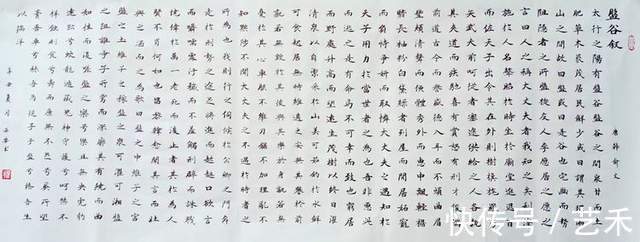 盤谷叙
唐韩愈文
太行之陽有盤谷盤谷之間泉甘而土
肥草木叢茂居民鮮少或曰謂其環兩
山之間故曰盤或曰是谷也宅幽而勢
阻隱者之所盤旋友人李愿居之愿之
言曰人之稱大丈夫者我知之矣利澤
施於人名聲昭於時坐於廟堂進退百官
而佐天子出令其在外則樹旗旄羅弓
矢武夫前呵從者塞途供給之人各執其物
夾道而疾馳喜有賞怒有刑才畯滿
前道古今而譽盛德入耳而不煩曲眉
豐頰清聲而便體秀外而惠中飄輕裾
翳長袖粉白黛綠者列屋而閒居妬寵
而負恃爭妍而取憐大丈夫之遇知於
天子用力於當世者之所為也吾非惡此
而逃之是有命焉不可幸而致也窮居
而野處升高而望遠坐茂樹以終日濯
清泉以自潔採於山美可茹釣於水鮮
可食起居無時惟適之安與其有譽於前孰
若無毀於其後與其有樂於身孰若無
憂於其心車服不維刀鋸不加理亂不
知黜陟不聞大丈夫不遇於時者之
所為也我則行之伺候於公卿之門奔
走於形勢之途足將進而趑趄口將言
而囁嚅處汙穢而不羞觸刑辟而誅戮
僥倖於萬一老死而後止者其於為人
賢不肖何如也昌黎韓愈聞其言而壯之
與之酒而為之歌曰盤之中維子之宮
盤之土維子之稼盤之泉可濯可湘盤
之阻誰爭子所窈而深廓其有容繚而曲
如往而復嗟盤之樂兮樂且無殃虎豹
遠跡兮蛟龍遁藏鬼神守護兮呵禁不
祥飲則食兮壽而康無不足兮奚所望
膏吾車兮秣吾馬從子于盤兮終吾生
以徜徉
辛丑夏月
快传号／艺禾